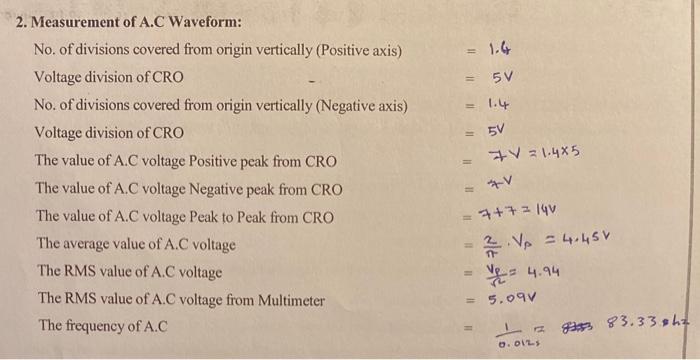 2. Measurement of A.C Waveform:
No. of divisions covered from origin vertically (Positive axis) = 1.4
Voltage division of CRO = 5V
No. of divisions covered from origin vertically (Negative axis) = 1.4
Voltage division of CRO = 5V
The value of A.C voltage Positive peak from CRO = 7V = 1.4×5
The value of A.C voltage Negative peak from CRO = 7V
The value of A.C voltage Peak to Peak from CRO = 7+7 = 14V
The average value of A.C voltage = 2/π . Vp = 4.45V
The RMS value of A.C voltage = Vp/√2 = 4.94
The RMS value of A.C voltage from Multimeter = 5.09V
The frequency of A.C = 1/0.012s = 83.33 hz